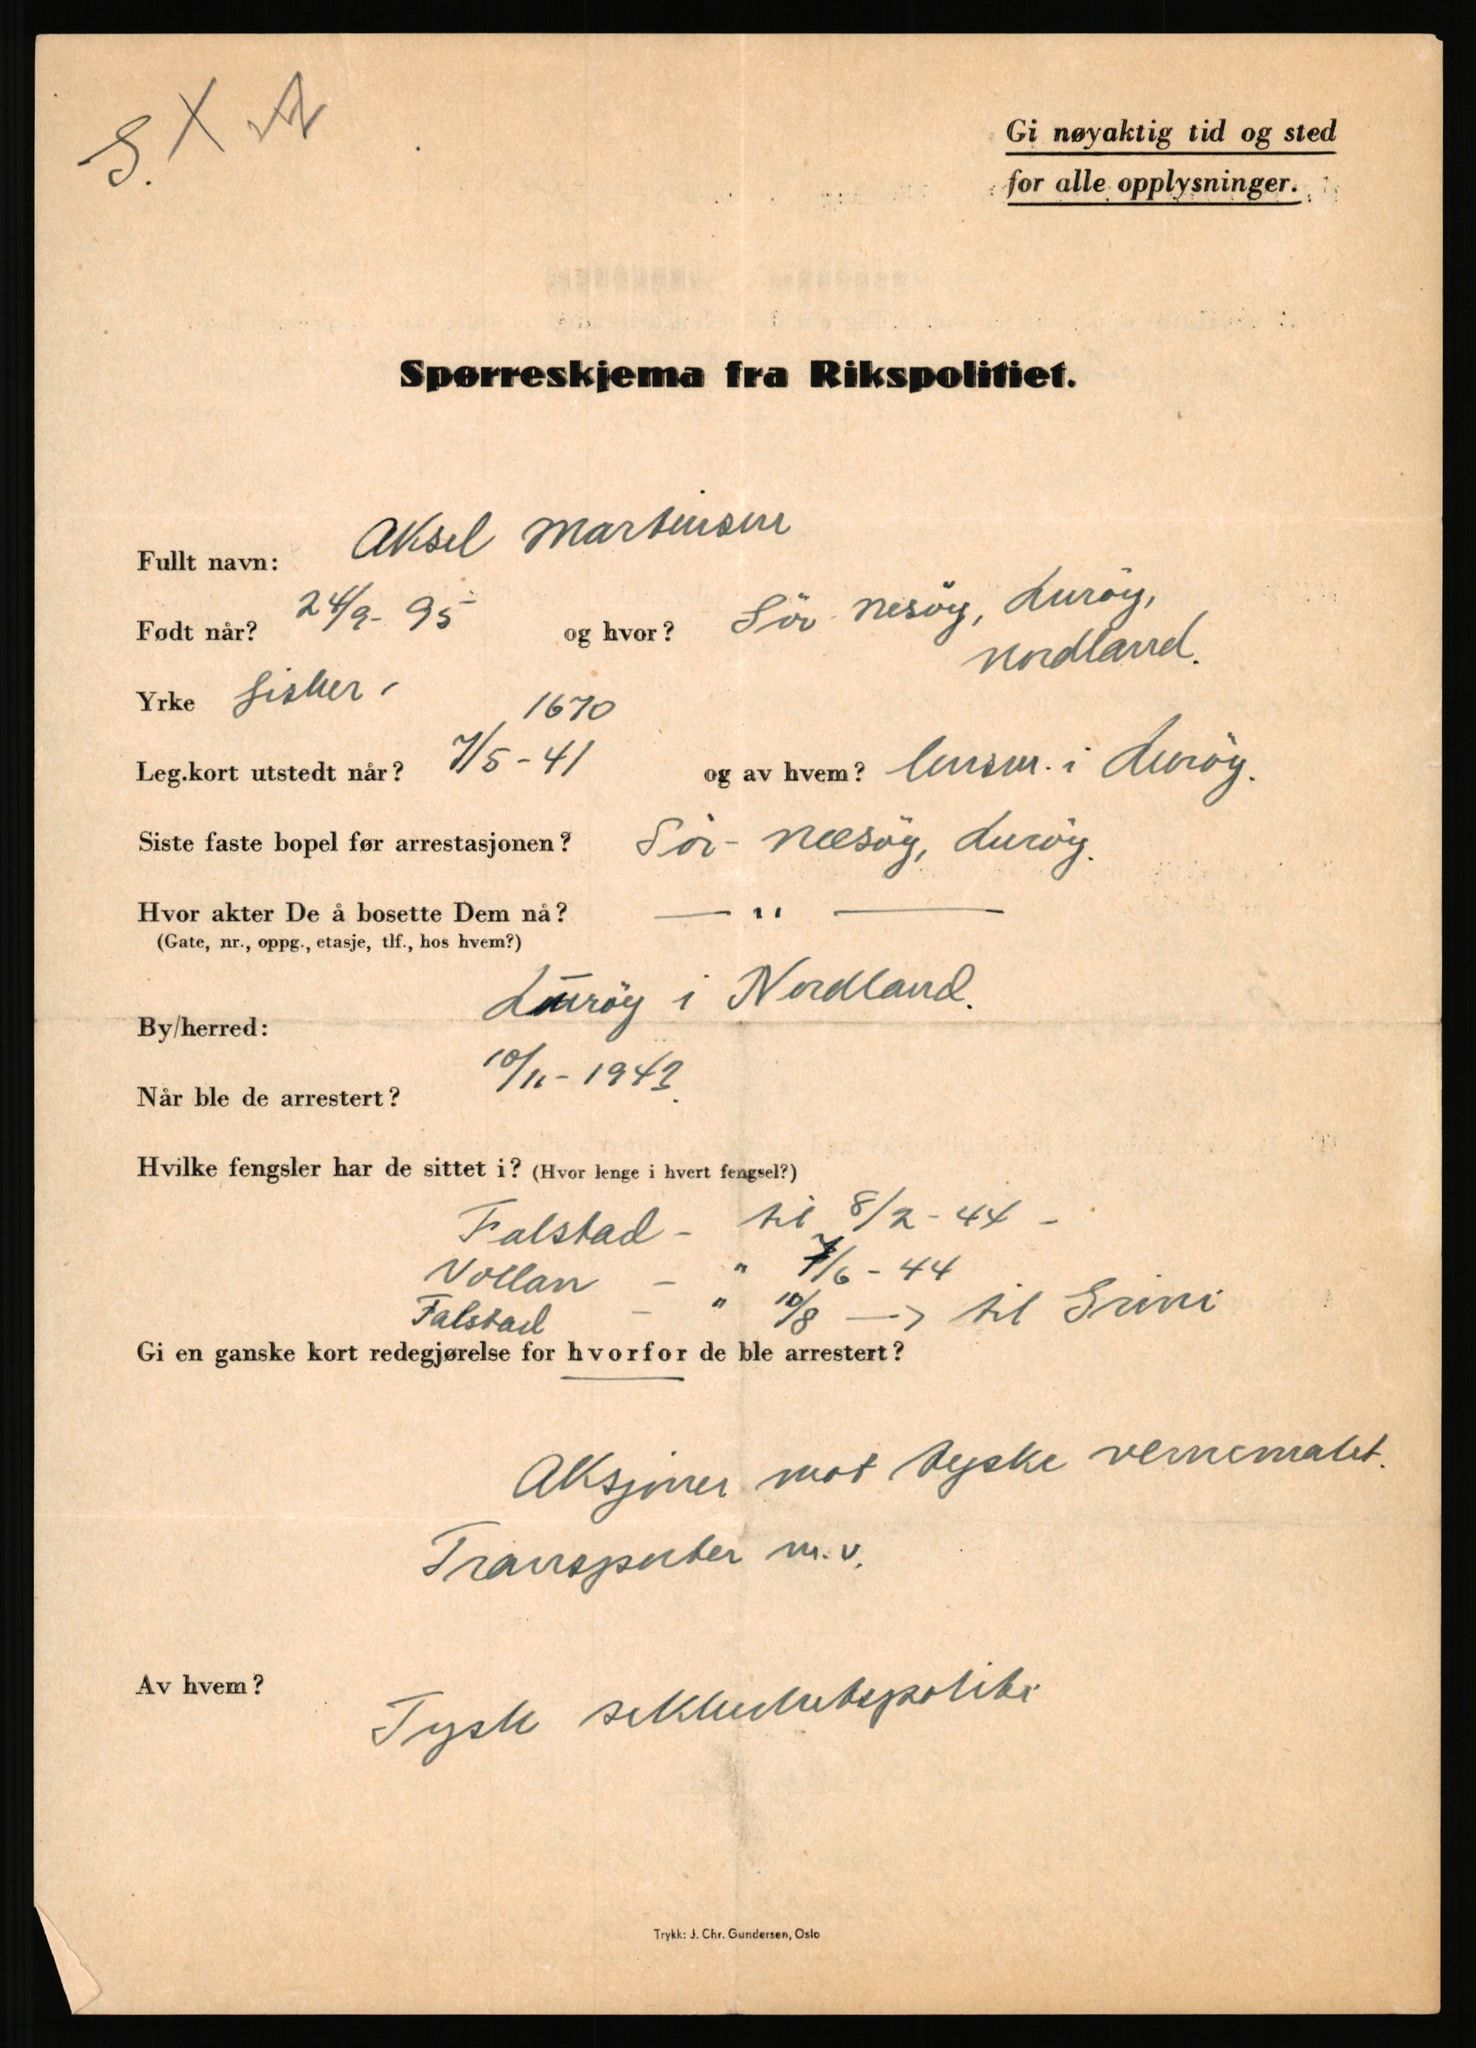 S. X A
Gi nøyaktig tid og sted
for alle opplysninger.
Spørreskjema fra Rikspolitiet.
Fullt navn: Aksel Martinsen
Født når? 24/9- 95 og hvor? Sör- Nesöy, Luröy,
Nordland.
Yrke fisker.
1670
Leg.kort utstedt når? 7/5-41 og av hvem? lensm. i Luröy.
Siste faste bopel før arrestasjonen? Sör- Næsöy, Luröy.
Hvor akter De å bosette Dem nå? — " —
(Gate, nr., oppg., etasje, tlf., hos hvem?)
By/herred: Luröy i Nordland.
Når ble de arrestert? 10/11-1943.
Hvilke fengsler har de sittet i? (Hvor lenge i hvert fengsel?)
Falstad - til 8/2-44 -
Vollan - " 7/6-44
Falstad - " 10/8 —> til Grini
Gi en ganske kort redegjørelse for hvorfor de ble arrestert?
Aksjoner mot tyske vernemakt.
Transporter m.v.
Av hvem? Tysk sikkerhetspoliti
Trykk: J. Chr. Gundersen, Oslo